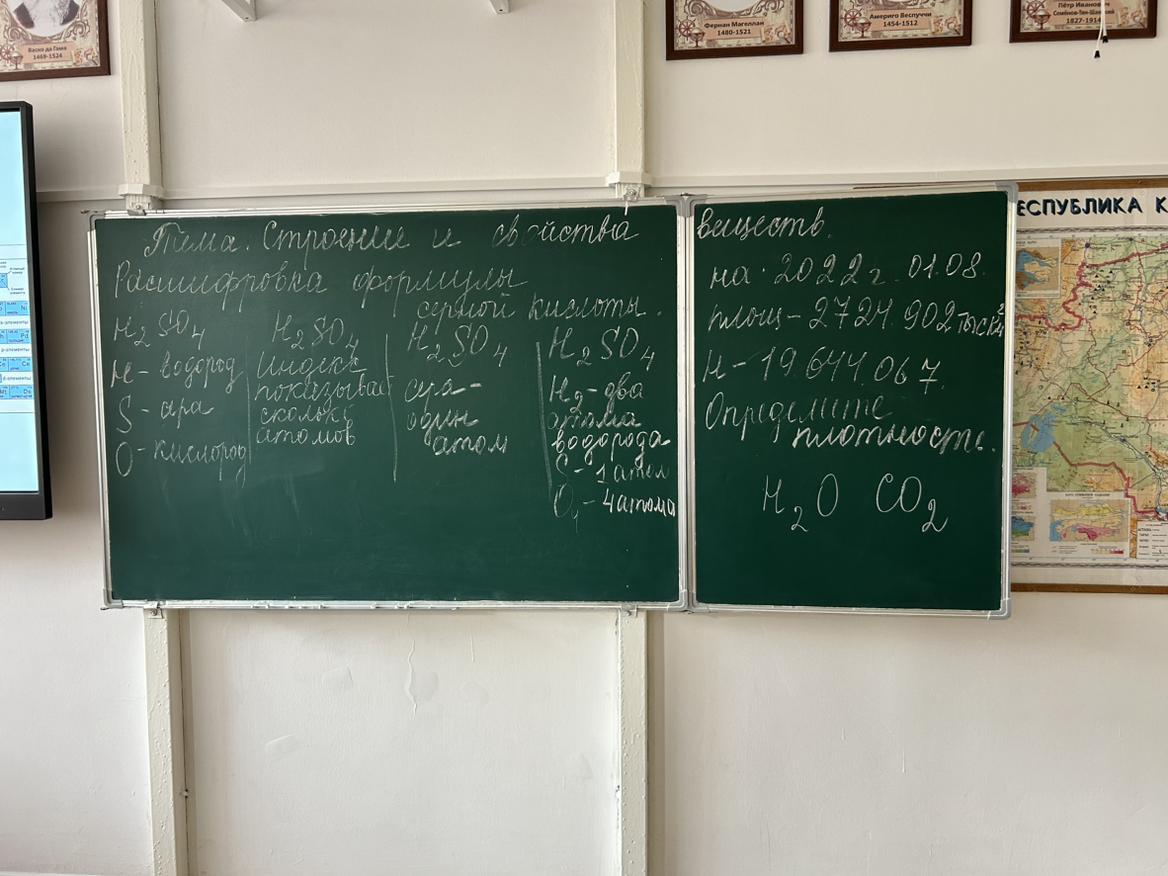 Васко да Гама
1469-1524
Фернан Магеллан
1480-1521
Америго Веспуччи
1454-1512
Пётр Иванович
Семёнов-Тян-Шанский
1827-1914
Тема. Строение и свойства веществ.
Расшифровка формулы
серной кислоты.
H2SO4
H - водород
S - сра
O - кислород
H2SO4
Индекс
показывае
сколько
атомов
H2SO4
сул-
один
атом
H2SO4
H2 - два
атома
водорода
S - 1 атом
O4 - 4 атома
на 2022 г. 01.08.
площ - 2724 902 тыс км2
Ч - 19.644.067.
Определите
плотность.
H2O CO2
ЕСПУБЛИКА К